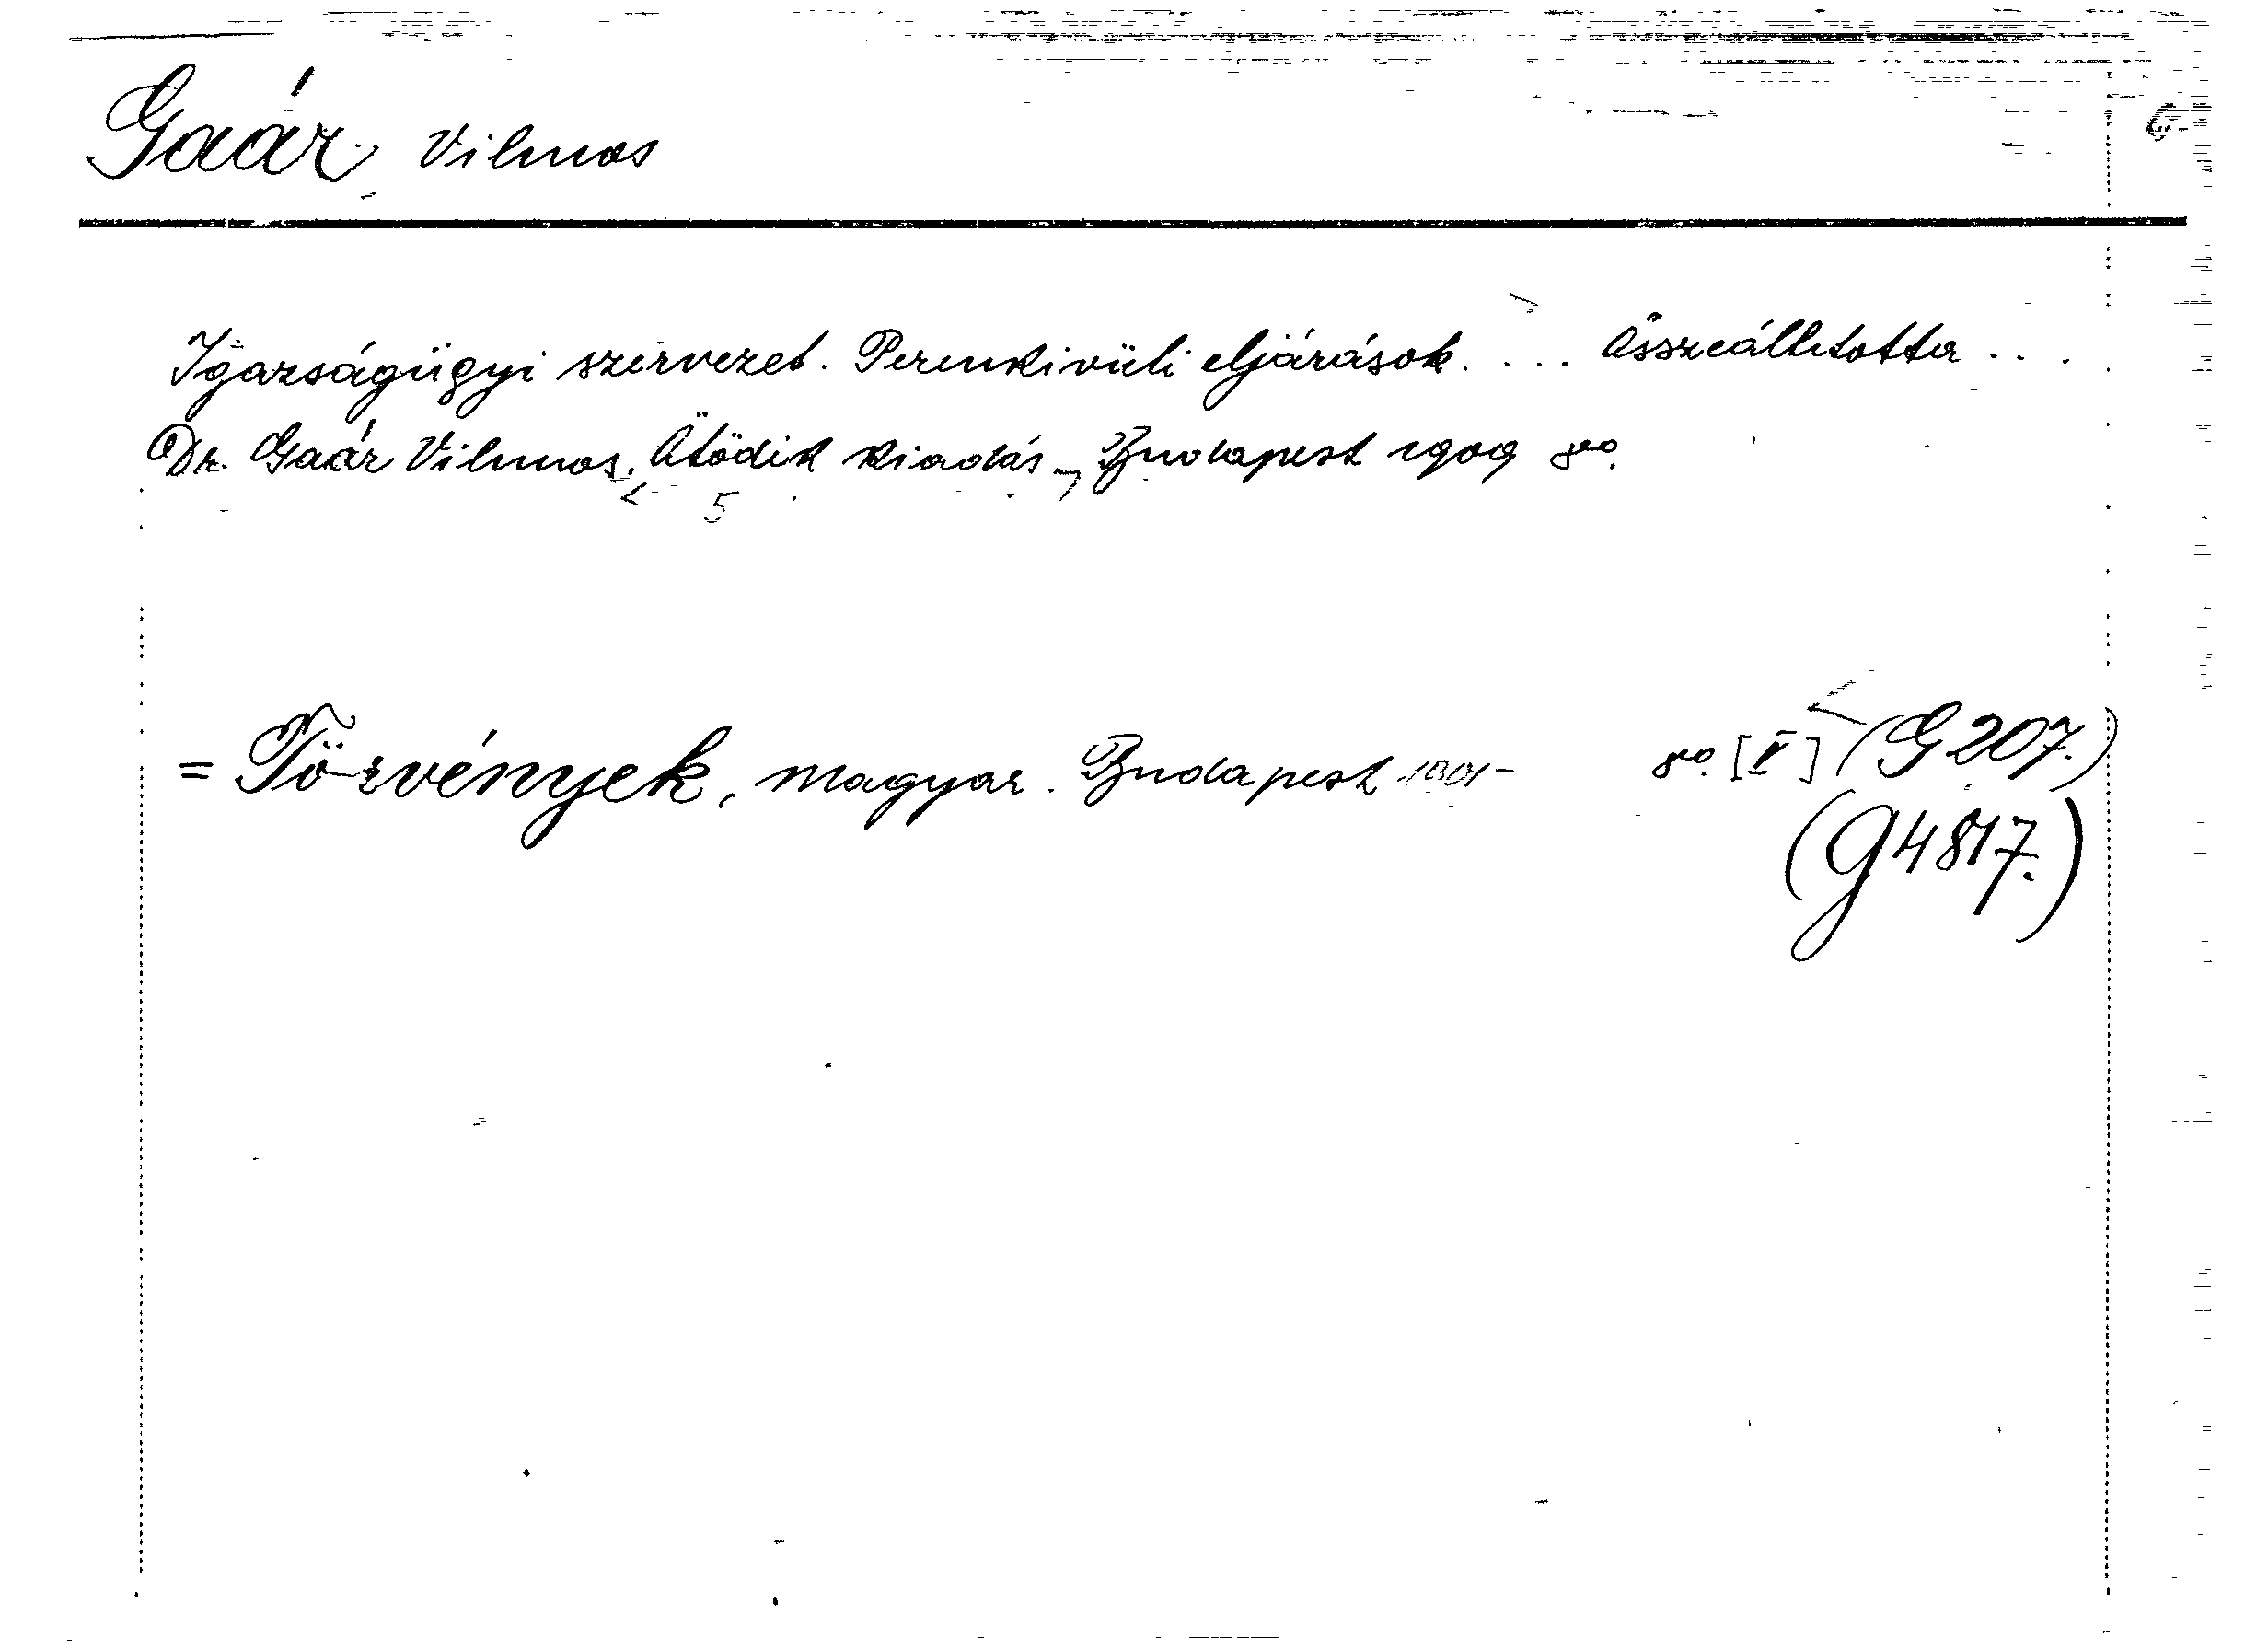 Gaár Vilmos
Igazságügyi szervezet. Perenkivüli eljárások. ... Összeállitotta ...
Dr. Gaár Vilmos. Ötödik kiadás, Budapest 1909 8vo.
5
= Törvények, magyar. Budapest 1901- 8vo. [V] (G 207.)
(G 4817.)